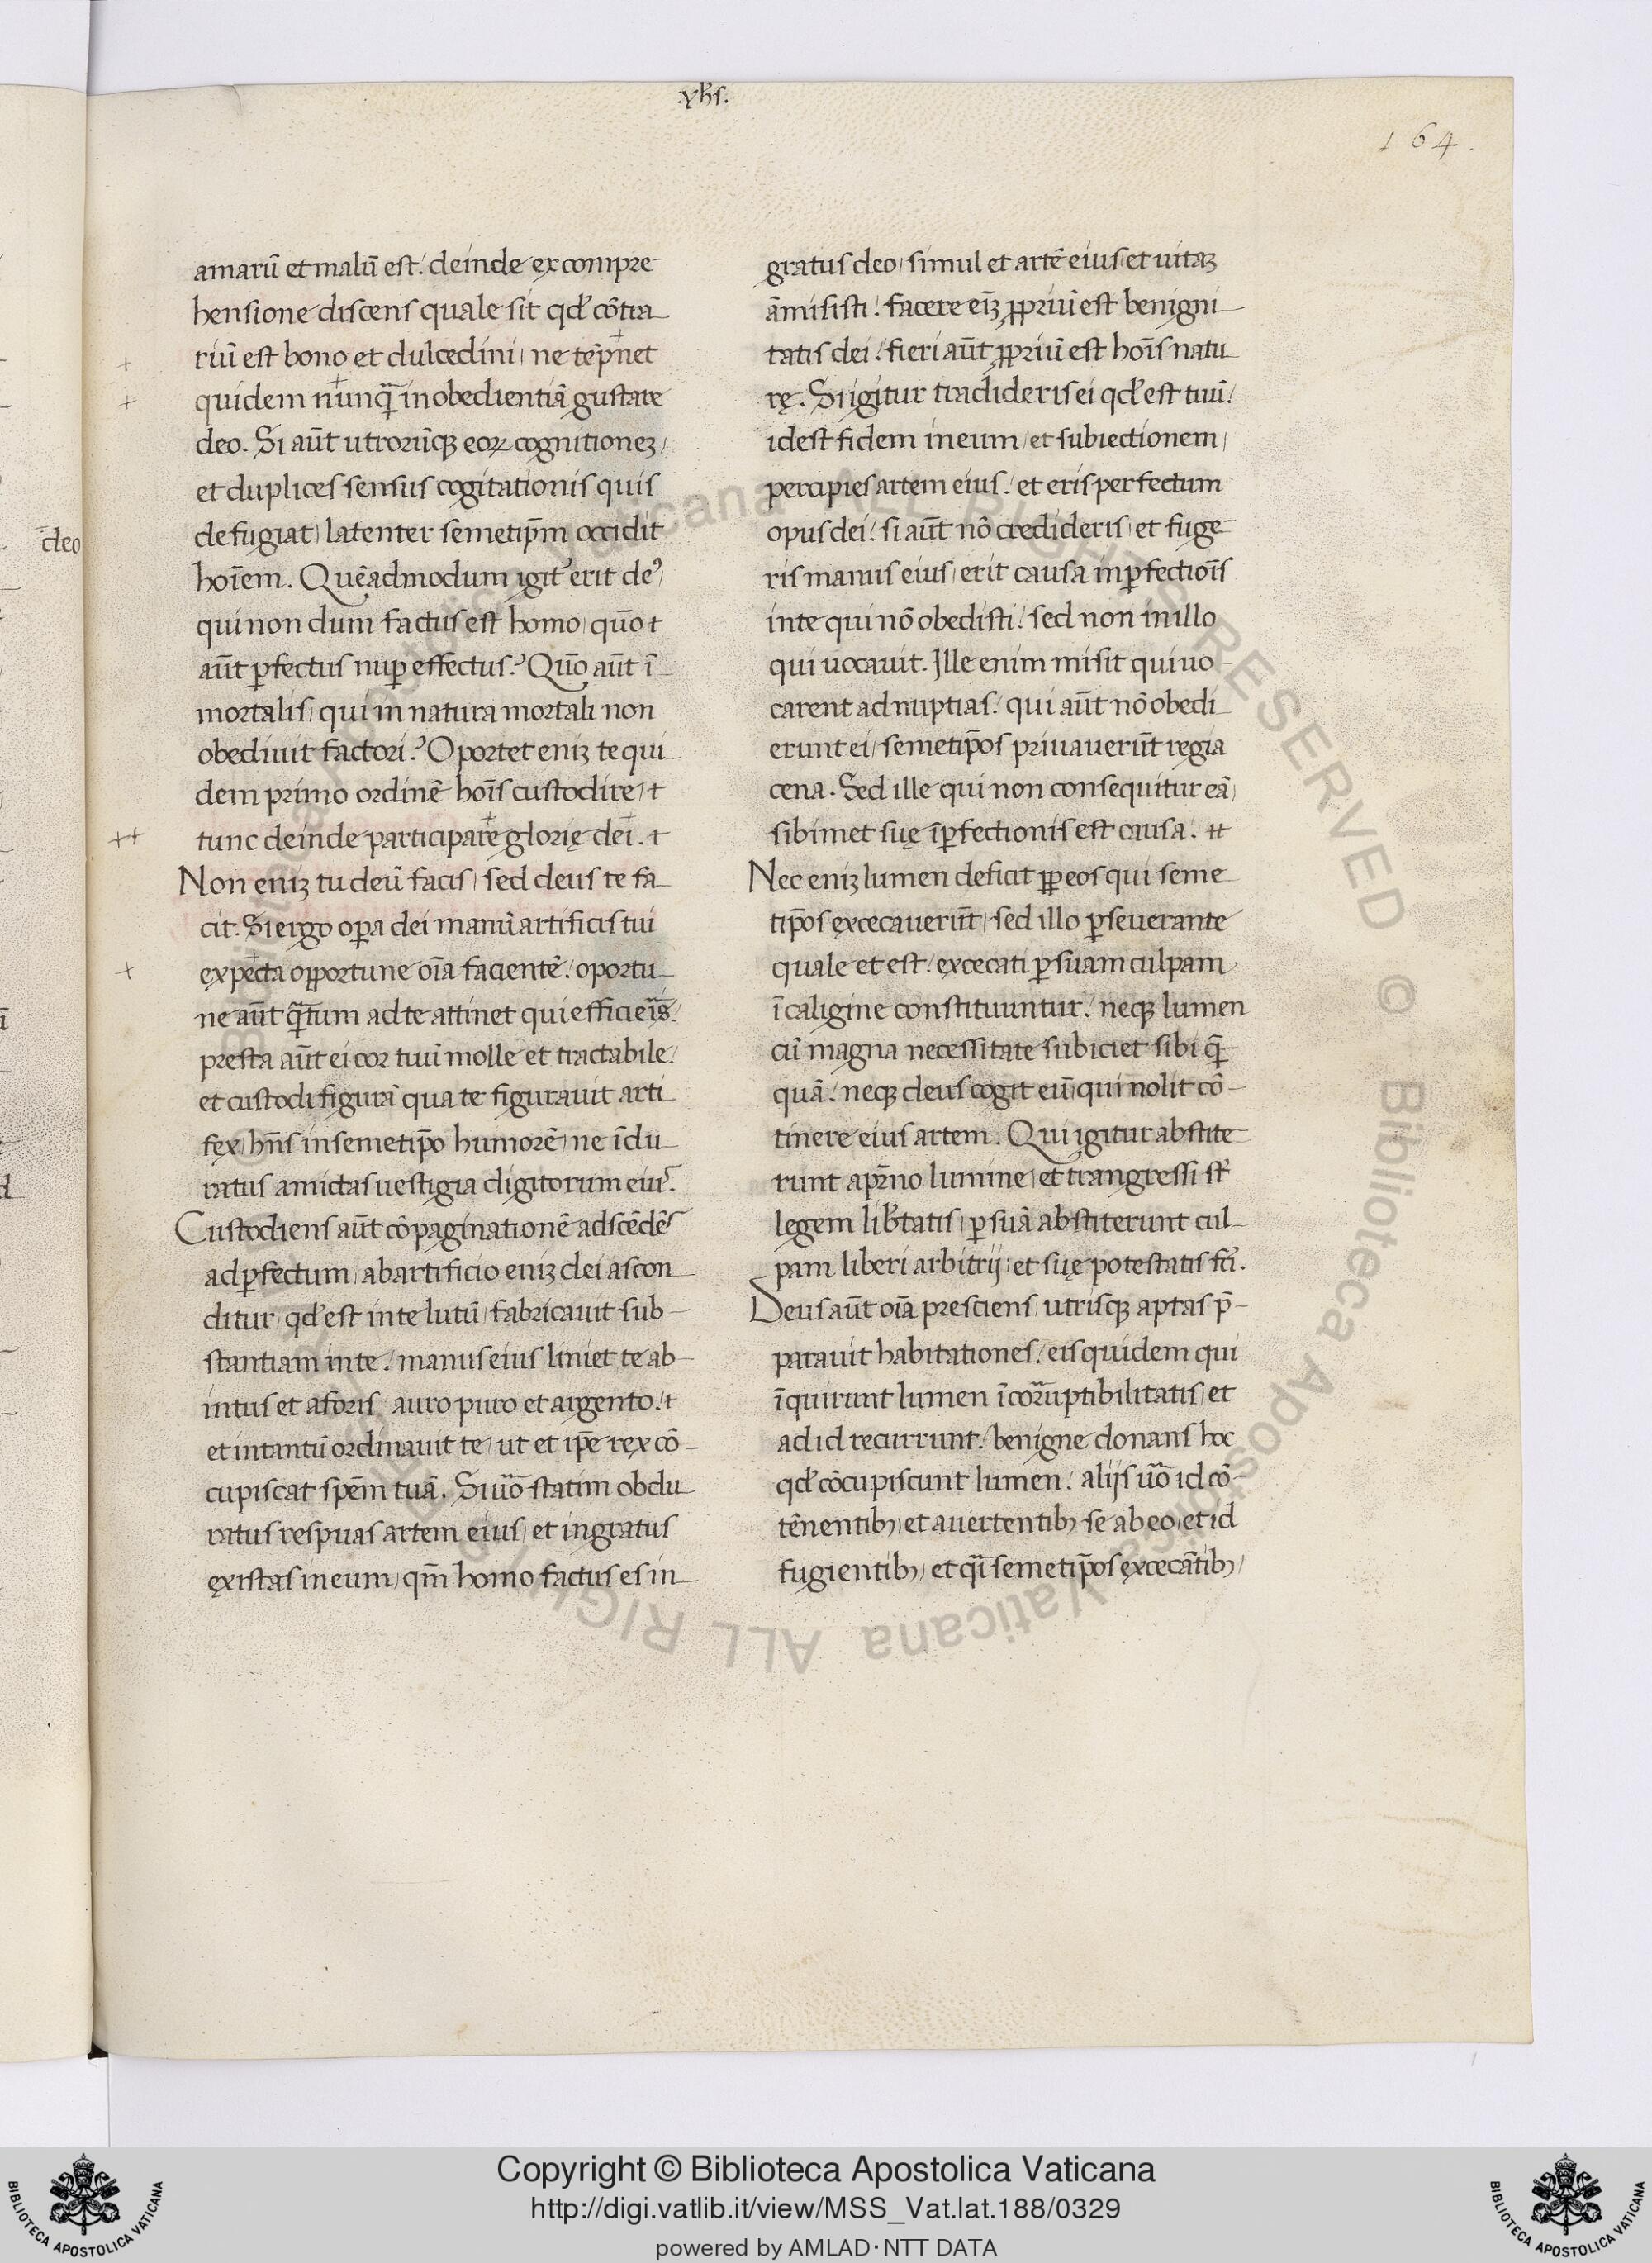 .yhs.
164.
deo
amarū et malū est. deinde ex compre
hensione discens quale sit qď cōtra
riū est bono et dulcedini, ne tēpnet
quidem nunq̄ inobedientiā gustare
deo. Si aūt utrorūq; eoꝝ cognitioneʒ,
et duplices sensus cogitationis quis
defugiat, latenter semetip̄m occidit
hoīem. Quēadmodum igit᷑ erit deꝰ,
qui non dum factus est homo, quō t
aūt ꝑfectus nuꝑ effectus? Quō aūt ī
mortalis, qui in natura mortali non
obediuit factori? Oportet eniʒ te qui
dem primo ordinē hoīs custodire, t
tunc deinde participare glorię dei. t
Non eniʒ tu deū facis, sed deus te fa
cit. Si ergo oꝑa dei manū artificis tui
expecta opportune oīa facientē. oportu
ne aūt q̄tum ad te attinet qui efficeris.
presta aūt ei cor tuū molle et tractabile.
et custodi figurā qua te figurauit arti
fex, hn̄s in semetip̄o humorē, ne īdu
ratus amittas uestigia digitorum eiuˢ.
Custodiens aūt cōpaginationē adscēdēs
ad ꝑfectum, ab artificio eniʒ dei ascon
ditur, qď est in te lutū, fabricauit sub
stantiam in te. manus eius liniet te ab
intus et a foris auro puro et argento. t
et in tantū ordinauit te, ut et ip̄e rex cō
cupiscat spēm tuā. Si uō statim obdu
ratus respuas artem eius, et ingratus
ęxistas in eum, qm̄ homo factus es in
gratus deo, simul et artē eius, et uitaʒ
āmisisti. facere eīʒ ꝓpriū est benigni
tatis dei. fieri aūt ꝓpriū est hoīs natu
rę. Si igitur tradideris ei qď est tuū.
id est fidem in eum, et subiectionem,
percipies artem eius. et eris perfectum
opus dei. si aūt nō credideris, et fuge
ris manus eius, erit causa inꝑfectiōis
in te qui nō obedisti. sed non in illo
qui uocauit. Ille enim misit qui uo
carent ad nuptias. qui aūt nō obedi
erunt ei, semetip̄os priuauerūt regia
cena. Sed ille qui non consequitur eā,
sibimet suę īꝑfectionis est causa. tt
Nec eniʒ lumen deficit ꝓp eos qui seme
tip̄os excecauerūt, sed illo ꝑseuerante
quale et est. excecati ꝑ suam culpam
ī caligine constituuntur. neq; lumen
cū magna necessitate subiciet sibi q̄
quā. neq; deus cogit eū, qui nolit cō
tinere eius artem. Qui igitur abstite
runt a pr̄no lumine, et trangressi sť
legem lib̄tatis, ꝑ suā abstiterunt cul
pam liberi arbitrij, et suę potestatis fťi.
Deus aūt oīa presciens, utrisq; aptas p̄
parauit habitationes. eis quidem qui
īquirunt lumen īcorruptibilitatis, et
ad id recurrunt. benigne donans hoc
qď cōcupiscunt lumen. alijs uō id cō
tēnentib;, et auertentib; se ab eo, et id
fugientib;, et q̄i semetip̄os ęxcecātib;,
Copyright © Biblioteca Apostolica Vaticana
http://digi.vatlib.it/view/MSS_Vat.lat.188/0329
powered by AMLAD·NTT DATA